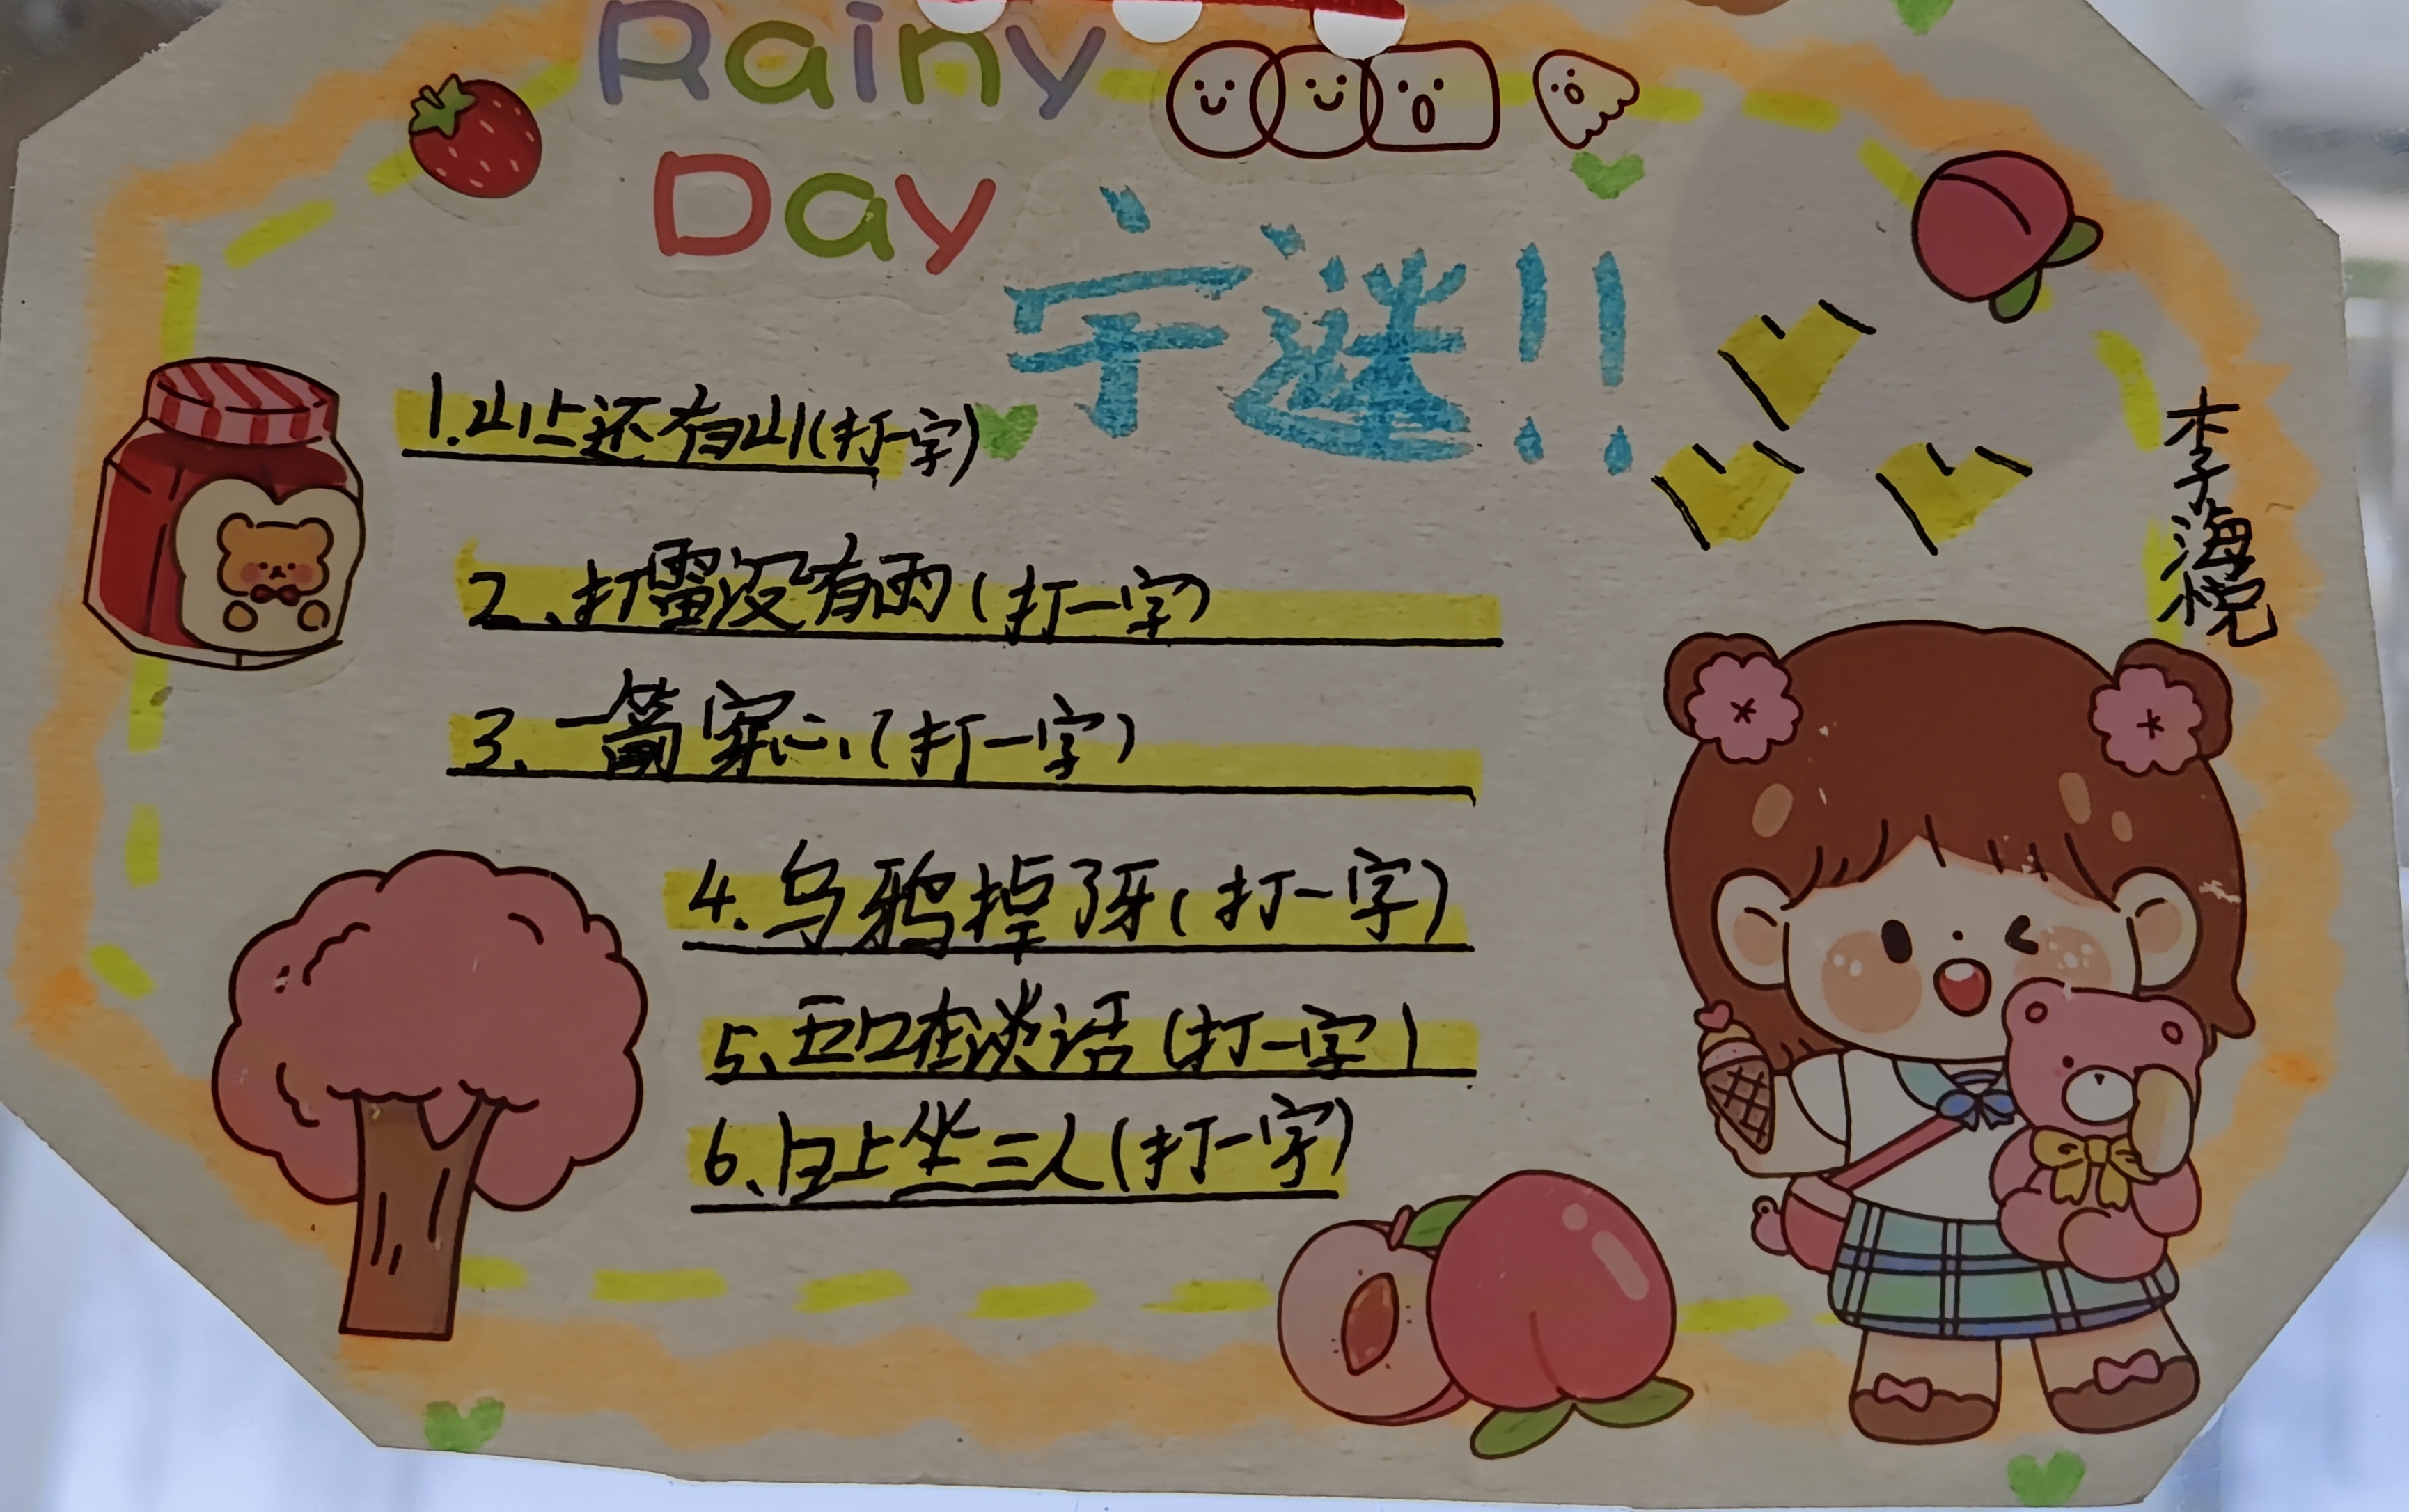 Rainy
Day
字谜!!
1.山上还有山(打一字)
2、打雷没有雨(打一字)
3、一箭穿心(打一字)
4.乌鸦掉了牙(打一字)
5、五口在谈话(打一字)
6、日上坐三人(打一字)
李子海悦